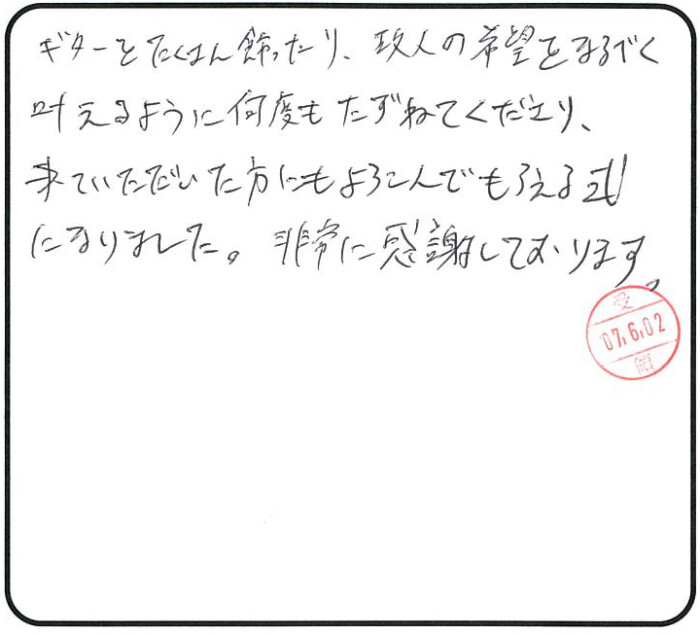 ギターをたくさん飾ったり、故人の希望をなるべく
叶えるように何度もたずねてくださり、
来ていただいた方にもよろこんでもらえる式
になりました。非常に感謝しております。
受
'07.6.02
領